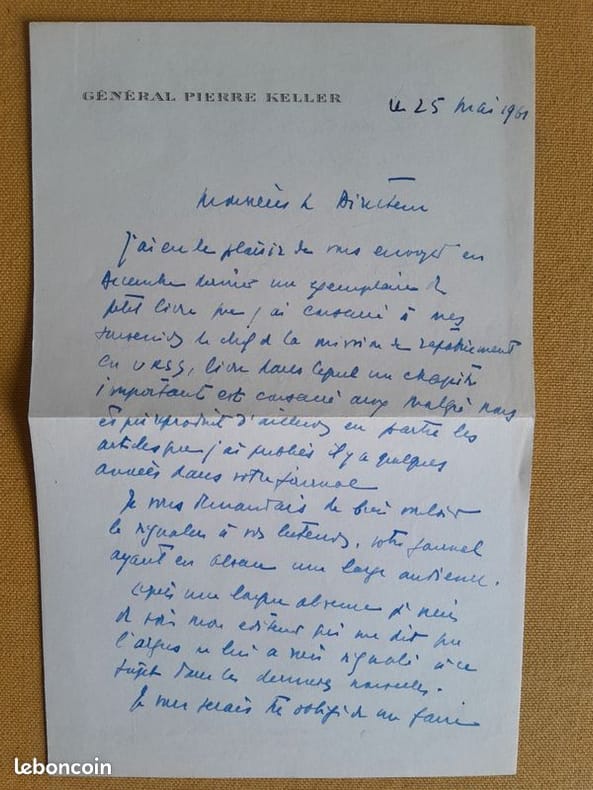 GÉNÉRAL PIERRE KELLER
le 25 mai 1961
Monsieur le Directeur
J'ai eu le plaisir de vous envoyer en
décembre dernier un exemplaire du
petit livre que j'ai consacré à mes
souvenirs de chef de la mission de rapatriement
en URSS, livre dans lequel un chapitre
important est consacré aux malgré nous
et qui reproduit d'ailleurs en partie les
articles que j'ai publiés il y a quelques
années dans votre journal
Je vous demandais de bien vouloir
le signaler à vos lecteurs, votre journal
ayant en Alsace une large audience.
Après une longue absence je viens
de voir mon éditeur qui me dit que
l'argus ne lui a rien signalé à ce
sujet dans les dernières nouvelles.
Je vous serais très obligé de me faire
leboncoin